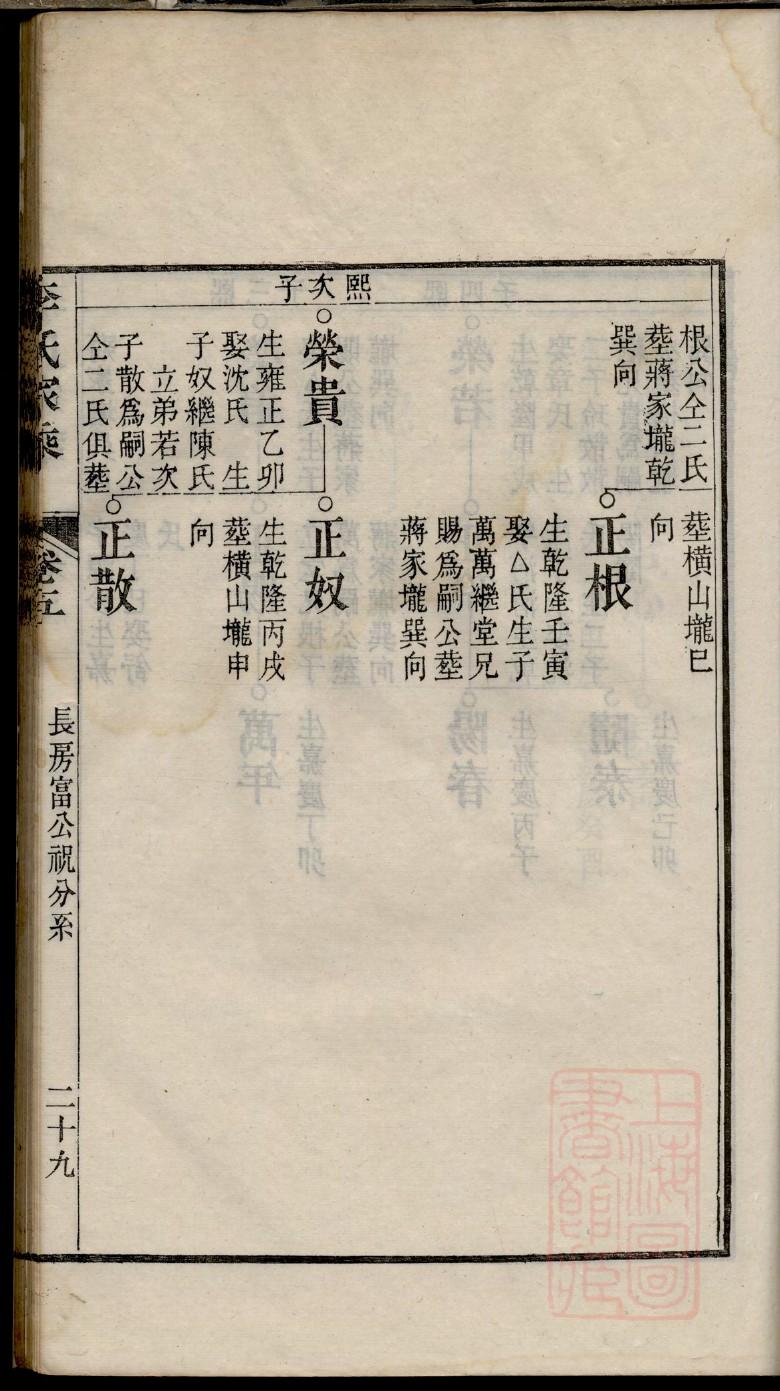 熙次子
根公仝二氏
塟蔣家壠乾
巽向
塟橫山壠巳
向
正根
生乾隆壬寅
娶△氏生子
萬萬繼堂兄
賜爲嗣公塟
蔣家壠巽向
榮貴
生雍正乙卯
娶沈氏 生
子奴繼陳氏
立弟若次
子散爲嗣公
仝二氏俱塟
正奴
生乾隆丙戌
塟橫山壠申
向
正散
李氏家乘
卷五
長房富公祝分系
二十九
上海圖
書館藏